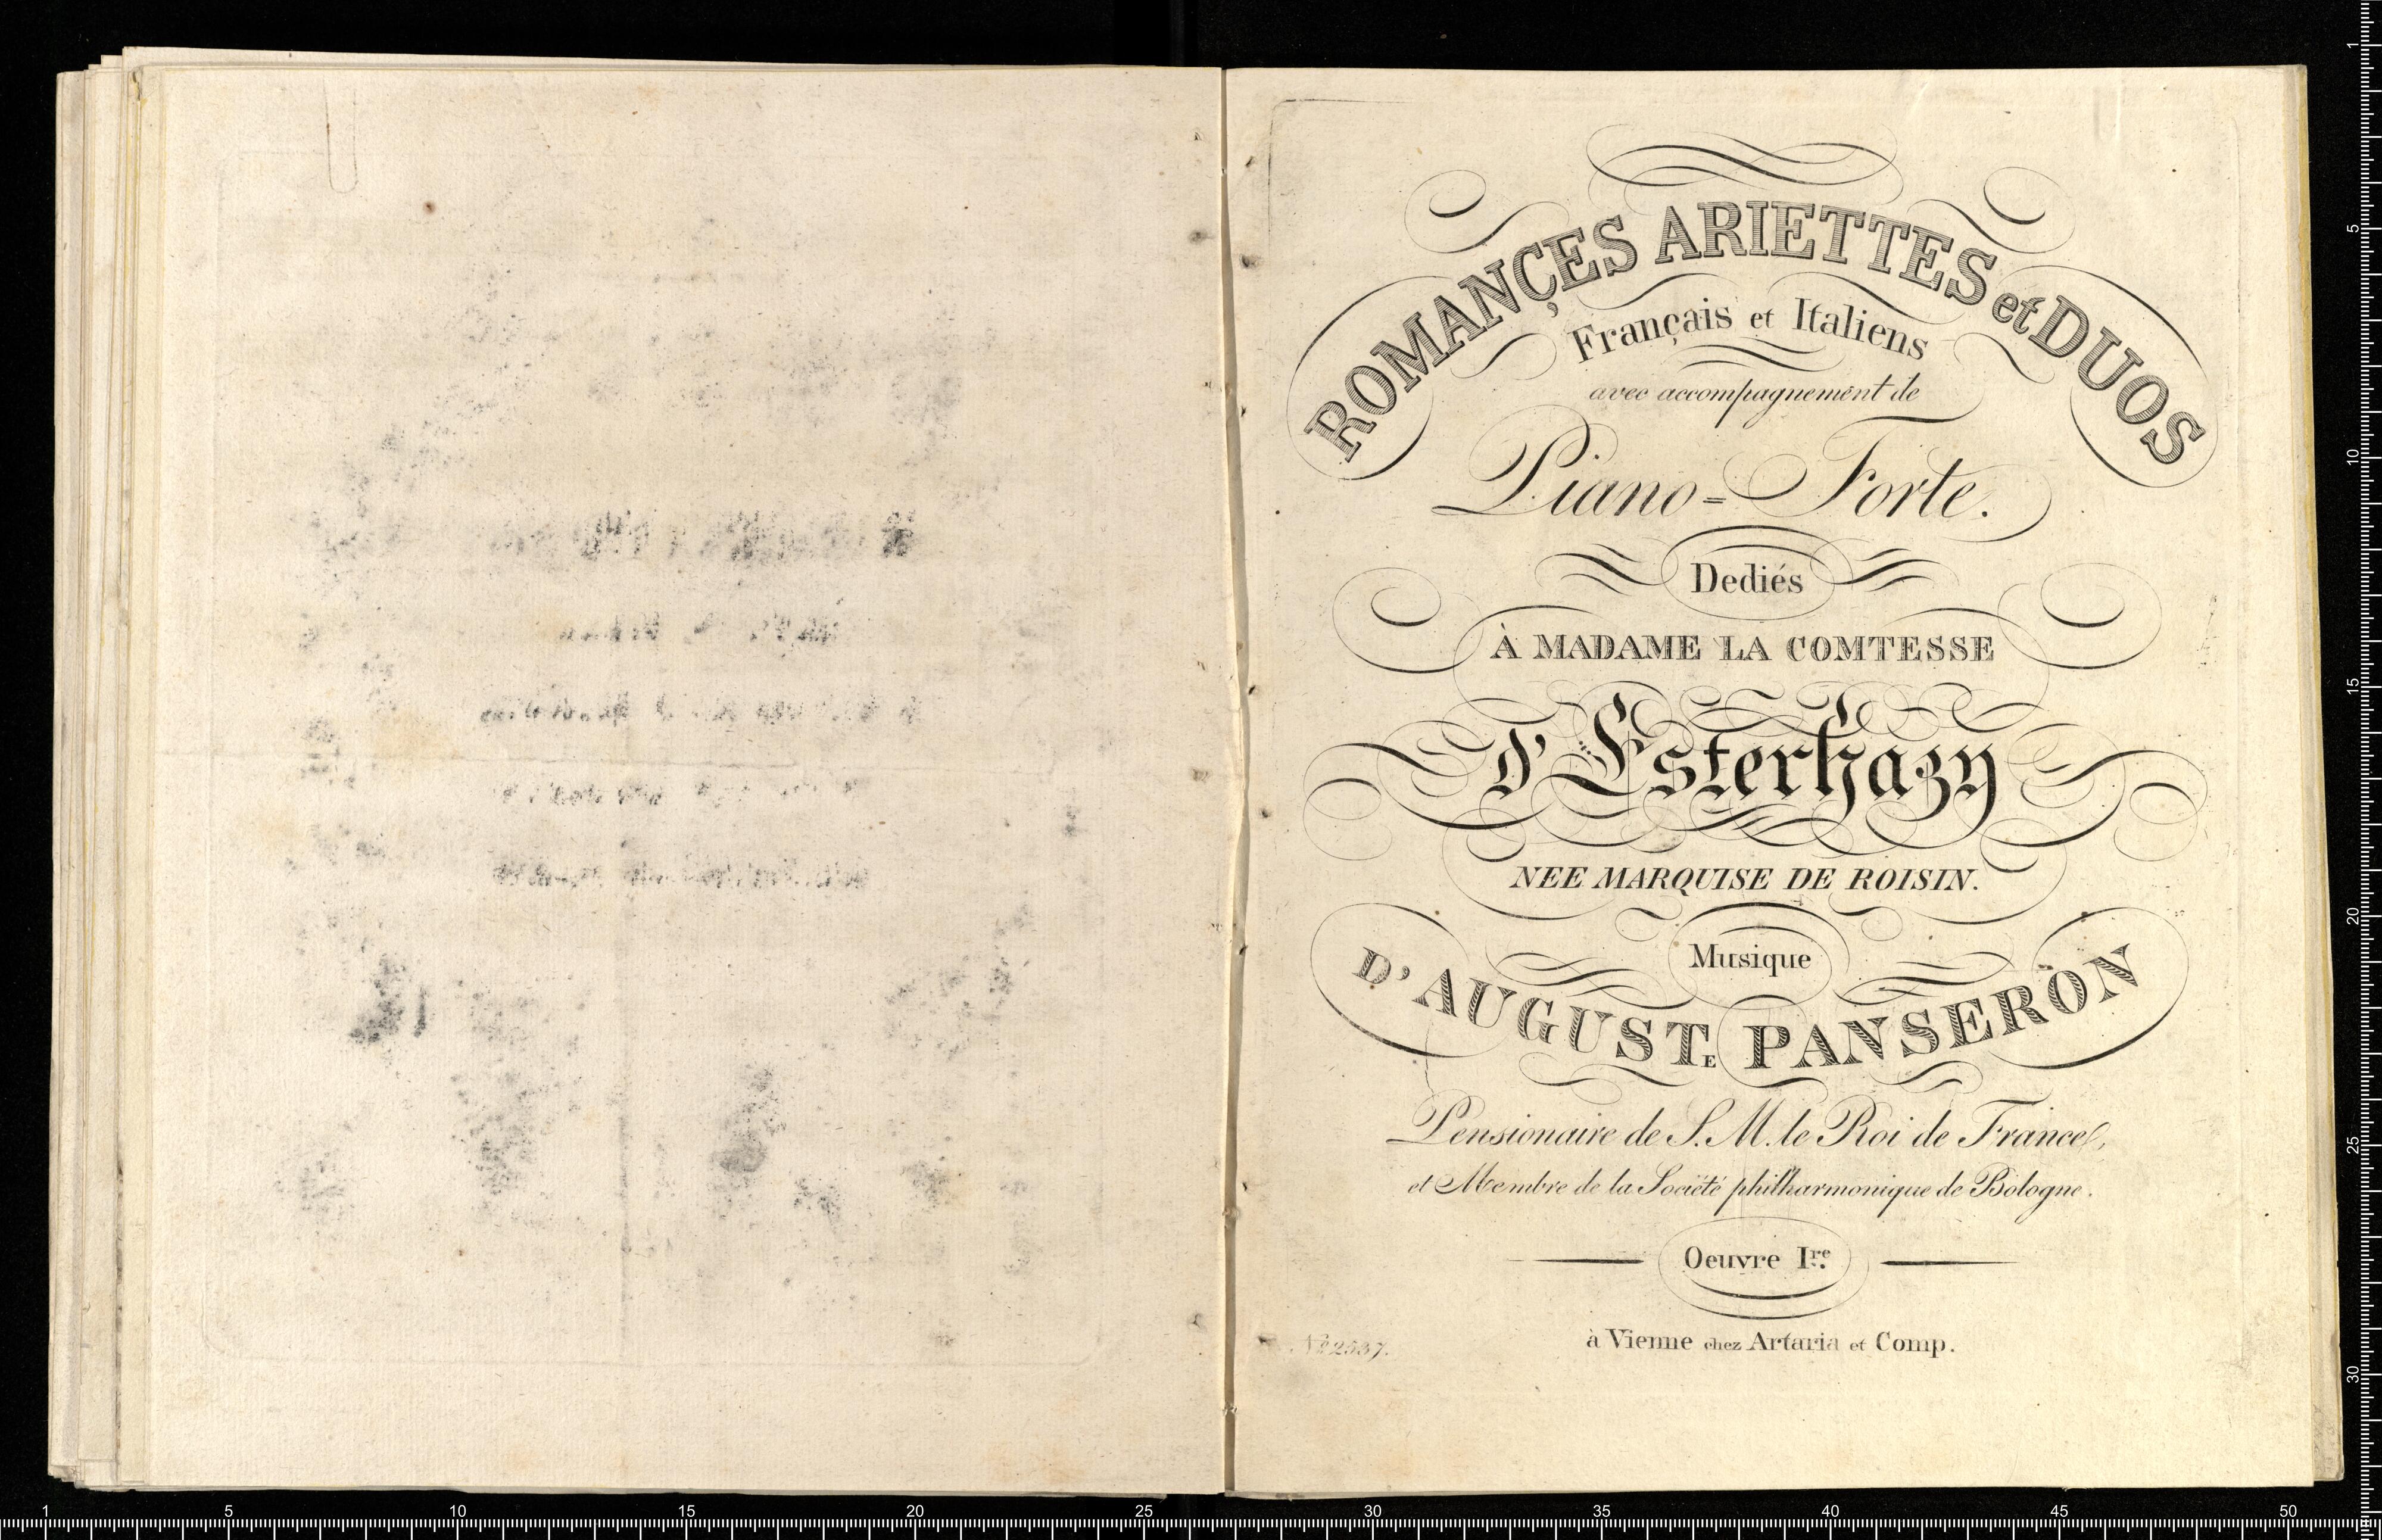 ROMANÇES ARIETTES et DUOS
Français et Italiens
avec accompagnement de
Piano=Forte.
Dediés
À MADAME LA COMTESSE
d'Esterhazy
NEE MARQUISE DE ROISIN.
Musique
D'AUGUSTE PANSERON
Pensionaire de S. M. le Roi de France,
et Membre de la Société philharmonique de Bologne.
Oeuvre Ire.
№ 2537.
à Vienne chez Artaria et Comp.
1 5 10 15 20 25 30 35 40 45 50
1 5 10 15 20 25 30